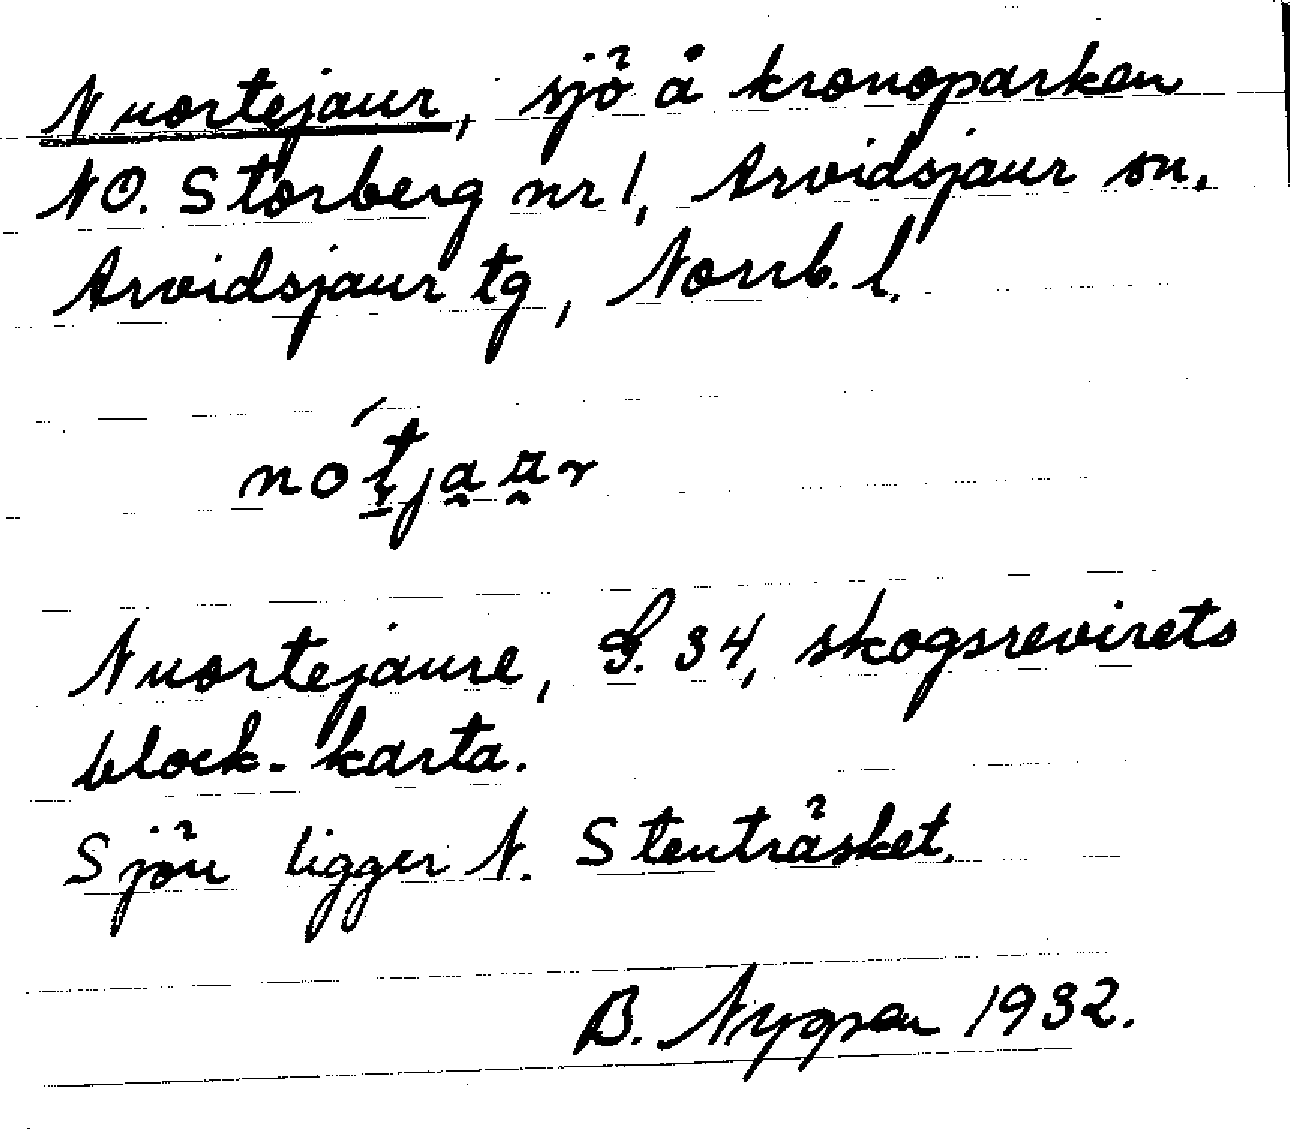 Nuortejaur, sjö å kronoparken
NO. Storberg nr 1, Arvidsjaur sn,
Arvidsjaur tg, Norrb. l.
Nuortejaure, G. 34, skogsrevirets
block-karta.
Sjön ligger N. Stenträsket.
B. Nygren 1932.